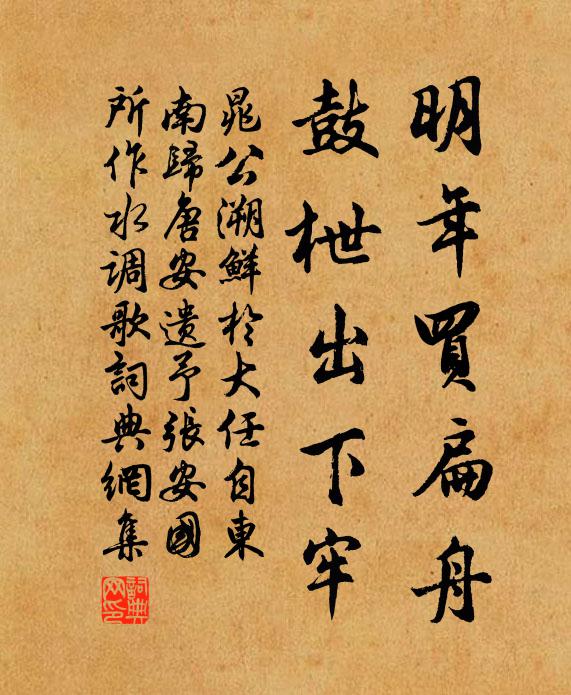 明年買扁舟
鼓枻出下牢
晁公溯鮮於大任自東
南歸唐安遺予張安國
所作水調歌詞典網集
詞典
网印